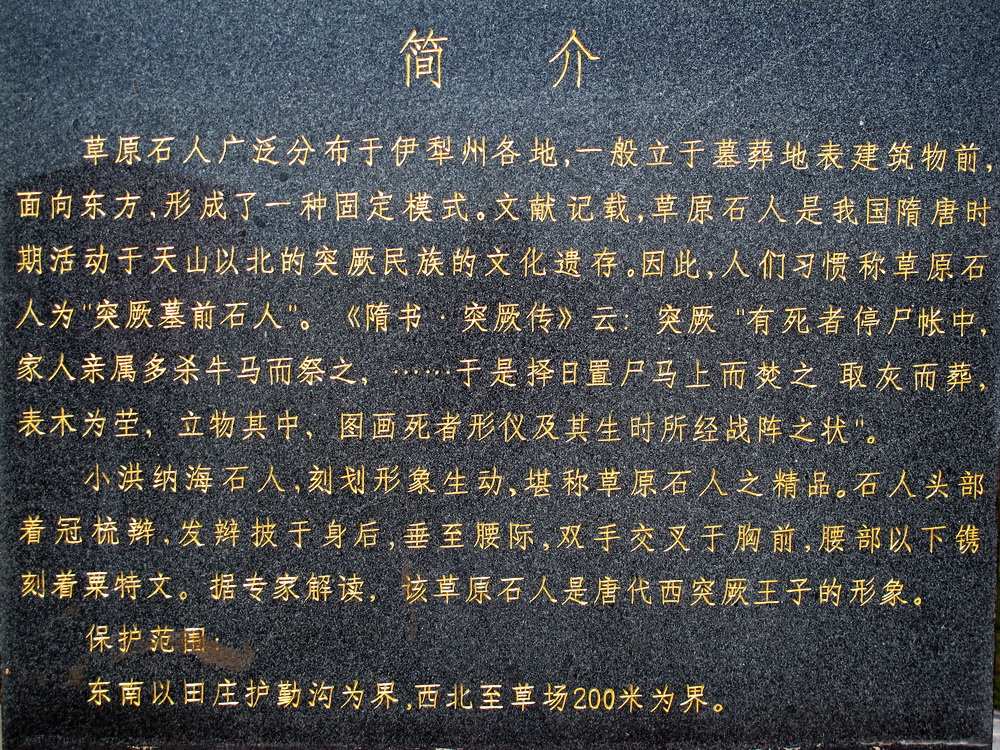 简 介
草原石人广泛分布于伊犁州各地,一般立于墓葬地表建筑物前,
面向东方,形成了一种固定模式。文献记载,草原石人是我国隋唐时
期活动于天山以北的突厥民族的文化遗存。因此,人们习惯称草原石
人为"突厥墓前石人"。《隋书·突厥传》云: 突厥 "有死者停尸帐中,
家人亲属多杀牛马而祭之, ……于是择日置尸马上而焚之 取灰而葬,
表木为茔, 立物其中, 图画死者形仪及其生时所经战阵之状"。
小洪纳海石人,刻划形象生动、堪称草原石人之精品。石人头部
着冠梳辫,发辫披于身后,垂至腰际,双手交叉于胸前,腰部以下镌
刻着粟特文。据专家解读, 该草原石人是唐代西突厥王子的形象。
保护范围:
东南以田庄护勤沟为界,西北至草场200米为界。